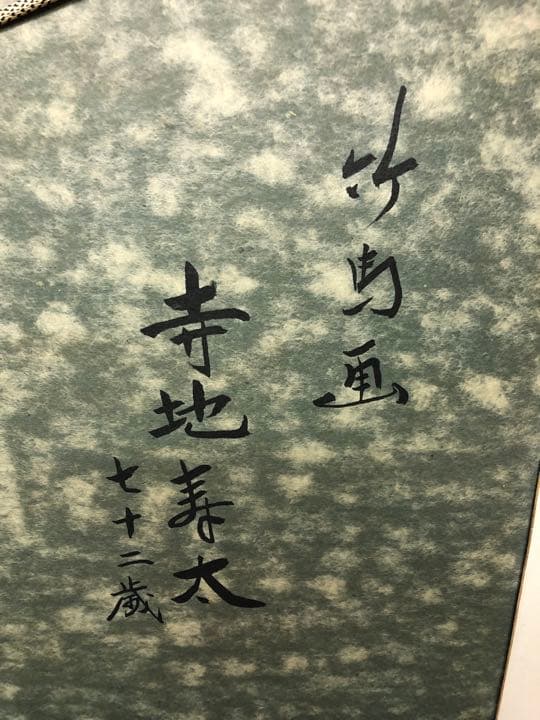 竹馬画
寺地寿太
七十二歳